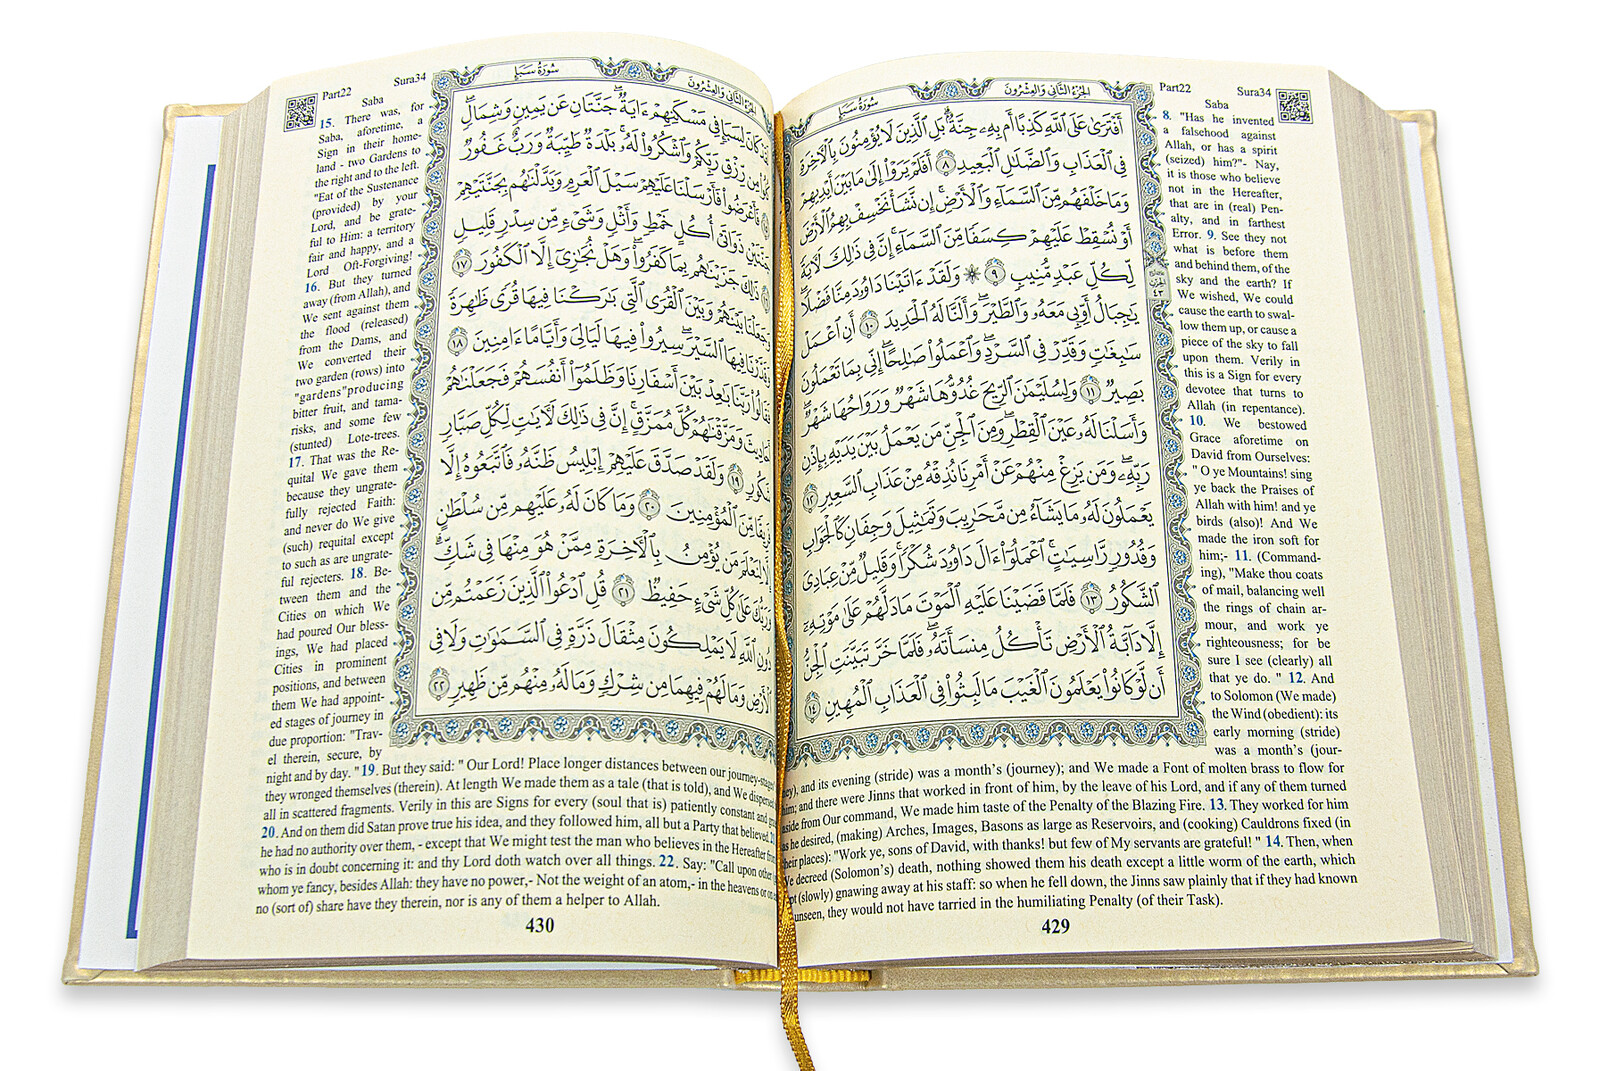 Part22 Sura34
سُورَةُ سَبَإٍ الجُزْءُ الثَّانِي وَالعِشْرُونَ
أَفْتَرَىٰ عَلَى ٱللَّهِ كَذِبًا أَم بِهِۦ جِنَّةٌۢ بَلِ ٱلَّذِينَ لَا يُؤْمِنُونَ بِٱلْأَخِرَةِ
فِي ٱلْعَذَابِ وَٱلضَّلَٰلِ ٱلْبَعِيدِ ٨ أَفَلَمْ يَرَوْا۟ إِلَىٰ مَا بَيْنَ أَيْدِيهِمْ
وَمَا خَلْفَهُم مِّنَ ٱلسَّمَآءِ وَٱلْأَرْضِ إِن نَّشَأْ نَخْسِفْ بِهِمُ ٱلْأَرْضَ
أَوْ نُسْقِطْ عَلَيْهِمْ كِسَفًا مِّنَ ٱلسَّمَآءِ إِنَّ فِي ذَٰلِكَ لَأٓيَةً
لِّكُلِّ عَبْدٍ مُّنِيبٍ ٩ ۞ وَلَقَدْ ءَاتَيْنَا دَاوُۥدَ مِنَّا فَضْلًا
يَٰجِبَالُ أَوِّبِي مَعَهُۥ وَٱلطَّيْرَ وَأَلَنَّا لَهُ ٱلْحَدِيدَ ١٠ أَنِ ٱعْمَلْ
سَٰبِغَٰتٍ وَقَدِّرْ فِي ٱلسَّرْدِ وَٱعْمَلُوا۟ صَٰلِحًا إِنِّي بِمَا تَعْمَلُونَ
بَصِيرٌ ١١ وَلِسُلَيْمَٰنَ ٱلرِّيحَ غُدُوُّهَا شَهْرٌ وَرَوَاحُهَا شَهْرٌ
وَأَسَلْنَا لَهُۥ عَيْنَ ٱلْقِطْرِ وَمِنَ ٱلْجِنِّ مَن يَعْمَلُ بَيْنَ يَدَيْهِ بِإِذْنِ
رَبِّهِۦ وَمَن يَزِغْ مِنْهُمْ عَنْ أَمْرِنَا نُذِقْهُ مِنْ عَذَابِ ٱلسَّعِيرِ ١٢
يَعْمَلُونَ لَهُۥ مَا يَشَآءُ مِن مَّحَٰرِيبَ وَتَمَٰثِيلَ وَجِفَانٍ كَٱلْجَوَابِ
وَقُدُورٍ رَّاسِيَٰتٍ ٱعْمَلُوٓا۟ ءَالَ دَاوُۥدَ شُكْرًا وَقَلِيلٌ مِّنْ عِبَادِيَ
ٱلشَّكُورُ ١٣ فَلَمَّا قَضَيْنَا عَلَيْهِ ٱلْمَوْتَ مَا دَلَّهُمْ عَلَىٰ مَوْتِهِۦٓ
إِلَّا دَآبَّةُ ٱلْأَرْضِ تَأْكُلُ مِنسَأَتَهُۥ فَلَمَّا خَرَّ تَبَيَّنَتِ ٱلْجِنُّ
أَن لَّوْ كَانُوا۟ يَعْلَمُونَ ٱلْغَيْبَ مَا لَبِثُوا۟ فِي ٱلْعَذَابِ ٱلْمُهِينِ ١٤
Saba
8. "Has he invented
a falsehood against
Allah, or has a spirit
(seized) him?"- Nay,
it is those who believe
not in the Hereafter,
that are in (real) Pen-
alty, and in farthest
Error. 9. See they not
what is before them
and behind them, of the
sky and the earth? If
We wished, We could
cause the earth to swal-
low them up, or cause a
piece of the sky to fall
upon them. Verily in
this is a Sign for every
devotee that turns to
Allah (in repentance).
10. We bestowed
Grace aforetime on
David from Ourselves:
" O ye Mountains! sing
ye back the Praises of
Allah with him! and ye
birds (also)! And We
made the iron soft for
him;- 11. (Command-
ing), "Make thou coats
of mail, balancing well
the rings of chain ar-
mour, and work ye
righteousness; for be
sure I see (clearly) all
that ye do. " 12. And
to Solomon (We made)
the Wind (obedient): its
early morning (stride)
was a month's (jour-
ney), and its evening (stride) was a month's (journey); and We made a Font of molten brass to flow for
him; and there were Jinns that worked in front of him, by the leave of his Lord, and if any of them turned
aside from Our command, We made him taste of the Penalty of the Blazing Fire. 13. They worked for him
as he desired, (making) Arches, Images, Basons as large as Reservoirs, and (cooking) Cauldrons fixed (in
their places): "Work ye, sons of David, with thanks! but few of My servants are grateful! " 14. Then, when
We decreed (Solomon's) death, nothing showed them his death except a little worm of the earth, which
kept (slowly) gnawing away at his staff: so when he fell down, the Jinns saw plainly that if they had known
unseen, they would not have tarried in the humiliating Penalty (of their Task).
429
Part22 Sura34
سُورَةُ سَبَإٍ الجُزْءُ الثَّانِي وَالعِشْرُونَ
لَقَدْ كَانَ لِسَبَإٍ فِي مَسْكَنِهِمْ ءَايَةٌ جَنَّتَانِ عَن يَمِينٍ وَشِمَالٍ
كُلُوا۟ مِن رِّزْقِ رَبِّكُمْ وَٱشْكُرُوا۟ لَهُۥ بَلْدَةٌ طَيِّبَةٌ وَرَبٌّ غَفُورٌ
١٥ فَأَعْرَضُوا۟ فَأَرْسَلْنَا عَلَيْهِمْ سَيْلَ ٱلْعَرِمِ وَبَدَّلْنَٰهُم بِجَنَّتَيْهِمْ
جَنَّتَيْنِ ذَوَاتَيْ أُكُلٍ خَمْطٍ وَأَثْلٍ وَشَيْءٍ مِّن سِدْرٍ قَلِيلٍ
١٦ ذَٰلِكَ جَزَيْنَٰهُم بِمَا كَفَرُوا۟ وَهَلْ نُجَٰزِيٓ إِلَّا ٱلْكَفُورَ ١٧
وَجَعَلْنَا بَيْنَهُمْ وَبَيْنَ ٱلْقُرَى ٱلَّتِي بَٰرَكْنَا فِيهَا قُرًى ظَٰهِرَةً
وَقَدَّرْنَا فِيهَا ٱلسَّيْرَ سِيرُوا۟ فِيهَا لَيَالِيَ وَأَيَّامًا ءَامِنِينَ ١٨
فَقَالُوا۟ رَبَّنَا بَٰعِدْ بَيْنَ أَسْفَارِنَا وَظَلَمُوٓا۟ أَنفُسَهُمْ فَجَعَلْنَٰهُمْ
أَحَادِيثَ وَمَزَّقْنَٰهُمْ كُلَّ مُمَزَّقٍ إِنَّ فِي ذَٰلِكَ لَأٓيَٰتٍ لِّكُلِّ صَبَّارٍ
شَكُورٍ ١٩ وَلَقَدْ صَدَّقَ عَلَيْهِمْ إِبْلِيسُ ظَنَّهُۥ فَٱتَّبَعُوهُ إِلَّا
فَرِيقًا مِّنَ ٱلْمُؤْمِنِينَ ٢٠ وَمَا كَانَ لَهُۥ عَلَيْهِم مِّن سُلْطَٰنٍ
إِلَّا لِنَعْلَمَ مَن يُؤْمِنُ بِٱلْأَخِرَةِ مِمَّنْ هُوَ مِنْهَا فِي شَكٍّ
وَرَبُّكَ عَلَىٰ كُلِّ شَيْءٍ حَفِيظٌ ٢١ قُلِ ٱدْعُوا۟ ٱلَّذِينَ زَعَمْتُم مِّن
دُونِ ٱللَّهِ لَا يَمْلِكُونَ مِثْقَالَ ذَرَّةٍ فِي ٱلسَّمَٰوَٰتِ وَلَا فِي
ٱلْأَرْضِ وَمَا لَهُمْ فِيهِمَا مِن شِرْكٍ وَمَا لَهُۥ مِنْهُم مِّن ظَهِيرٍ ٢٢
Saba
15. There was, for
Saba, aforetime, a
Sign in their home-
land - two Gardens to
the right and to the left.
"Eat of the Sustenance
(provided) by your
Lord, and be grate-
ful to Him: a territory
fair and happy, and a
Lord Oft-Forgiving!
16. But they turned
away (from Allah), and
We sent against them
the flood (released)
from the Dams, and
We converted their
two garden (rows) into
"gardens"producing
bitter fruit, and tama-
risks, and some few
(stunted) Lote-trees.
17. That was the Re-
quital We gave them
because they ungrate-
fully rejected Faith:
and never do We give
(such) requital except
to such as are ungrate-
ful rejecters. 18. Be-
tween them and the
Cities on which We
had poured Our bless-
ings, We had placed
Cities in prominent
positions, and between
them We had appoint-
ed stages of journey in
due proportion: "Trav-
el therein, secure, by
night and by day. "19. But they said: " Our Lord! Place longer distances between our journey-stages
they wronged themselves (therein). At length We made them as a tale (that is told), and We dispersed
all in scattered fragments. Verily in this are Signs for every (soul that is) patiently constant and
20. And on them did Satan prove true his idea, and they followed him, all but a Party that believed.
he had no authority over them, - except that We might test the man who believes in the Hereafter from
who is in doubt concerning it: and thy Lord doth watch over all things. 22. Say: "Call upon other
whom ye fancy, besides Allah: they have no power,- Not the weight of an atom,- in the heavens or on
no (sort of) share have they therein, nor is any of them a helper to Allah.
430